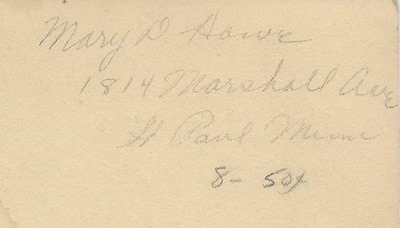 Mary D Howe
1814 Marshall Ave
St Paul Minn
8- 50¢